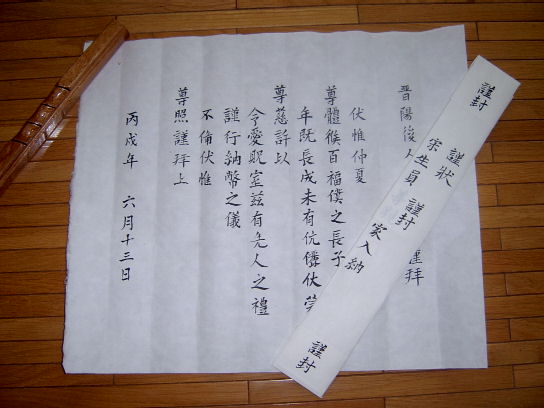 晋陽後人
謹拜
伏惟仲夏
尊體候百福僕之長子
年旣長成未有伉儷伏蒙
尊慈許以
令愛貺室玆有先人之禮
謹行納幣之儀
不備伏惟
尊照謹拜上
丙戌年 六月十三日
謹狀
宋生員 家入納
謹封
謹封
謹封